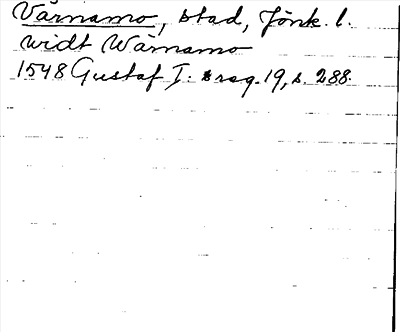 Värnamo, stad, Jönk. l.
widt Wärnamo
1548 Gustaf I:s reg. 19, s. 288.